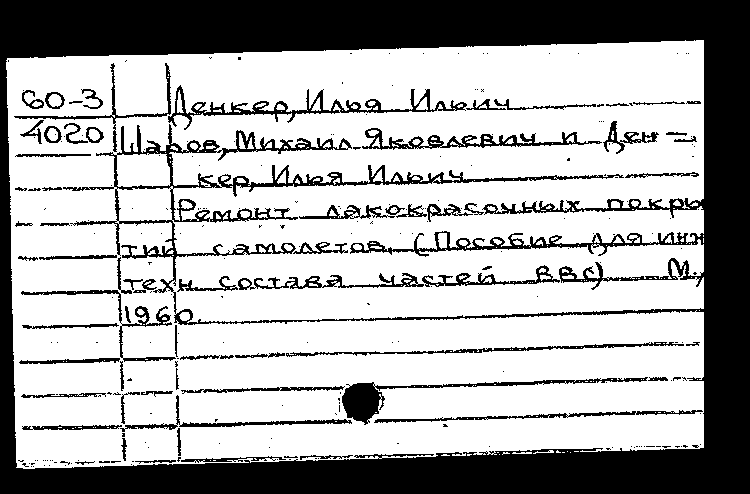 60-3 Денкер, Илья Ильич
4020 Шаров, Михаил Яковлевич и Ден-
кер, Илья Ильич
Ремонт лакокрасочных покры
тий самолетов. (Пособие для инж
техн состава частей ВВС) М.,
1960.